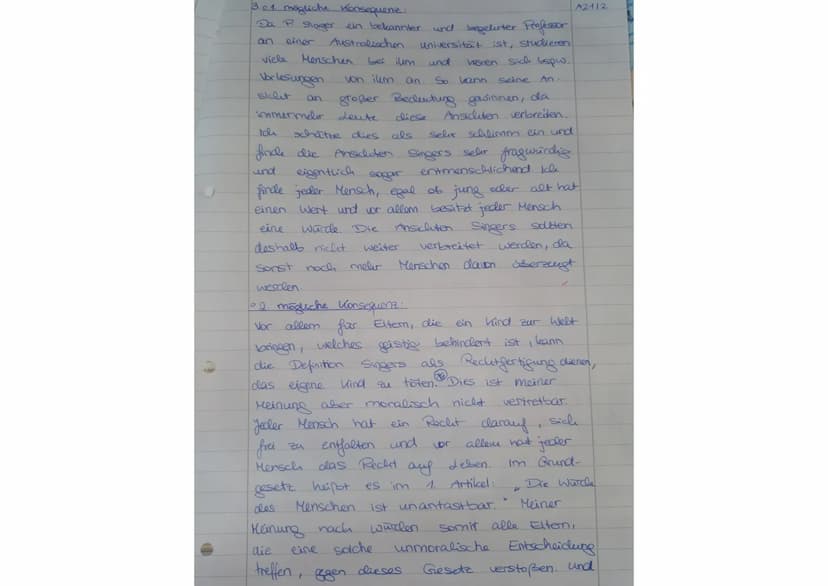 3. o 1. mögliche Konsequenz: A2112
Da P. Singer ein bekannter und begehrter Professor
an einer Australischen universität ist, studieren
viele Menschen bei ihm und hören sich bspw.
Vorlesungen von ihm an. So kann seine An-
sicht an großer Bedeutung gewinnen, da
immer mehr Leute diese Ansichten verbreiten.
Ich schätze dies als sehr schlimm ein und
finde die Ansichten Singers sehr fragwürdig
und eigentlich sogar entmenschlichend. Ich
finde jeder Mensch, egal ob jung oder alt hat
einen Wert und vor allem besitzt jeder Mensch
eine Würde. Die Ansichten Singers sollten
deshalb nicht weiter verbreitet werden, da
sonst noch mehr Menschen davon überzeugt
werden.
o 2. mögliche Konsequenz:
Vor allem für Eltern, die ein Kind zur Welt
bringen, welches geistig behindert ist, kann
die Definition Singers als Rechtfertigung dienen,
das eigene Kind zu töten. Dies ist meiner
Meinung aber moralisch nicht vertretbar.
Jeder Mensch hat ein Recht darauf, sich
frei zu entfalten und vor allem hat jeder
Mensch das Recht auf Leben. Im Grund-
gesetz heißt es im 1. Artikel: „Die Würde
des Menschen ist unantastbar." Meiner
Meinung nach würden somit alle Eltern,
die eine solche unmoralische Entscheidung
treffen, gegen dieses Gesetz verstoßen und